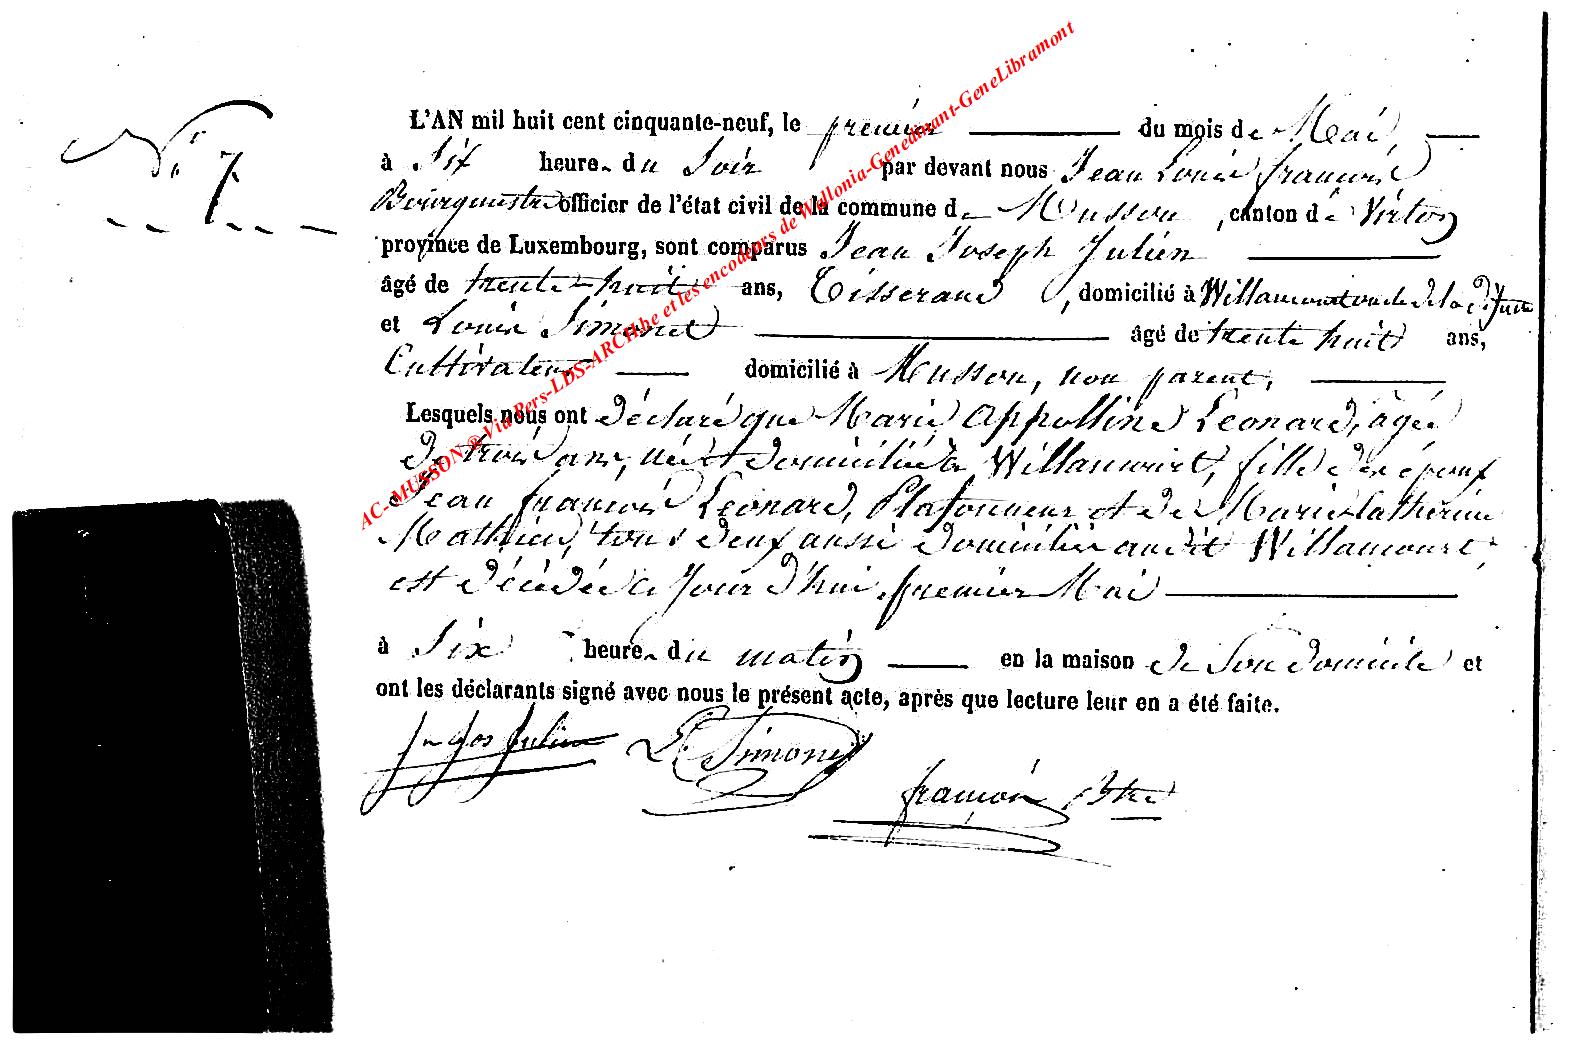 N° 7
L'AN mil huit cent cinquante-neuf, le premier du mois de Mai,
à Six heure du Soir par devant nous Jean Louis françois
Bourgmestre officier de l'état civil de la commune de Musson, canton de Virton
province de Luxembourg, sont comparus Jean Joseph Julien
âgé de trente-huit ans, Tisserand, domicilié à Willancourt
et Louis Simonet âgé de trente huit ans,
Cultivateur domicilié à Musson, non parent,
Lesquels nous ont déclaré que Marie Appolline Léonard, âgée
de trois ans, née et domiciliée à Willancourt, fille des époux
Jean françois Léonard, Plafonneur et de Marie Catherine
Mathieu, tous deux aussi domiciliés audit Willancourt,
est décédée ce jour d'hui premier Mai
à Six heure du matin en la maison de Son domicile et
ont les déclarants signé avec nous le présent acte, après que lecture leur en a été faite.
Jn Jos Julien L Simonet
françois Btre
AC-MUSSON® Via Pers-LDS-ARCH.be et les encodeurs de Wallonia-Genedinant-GeneLibramont